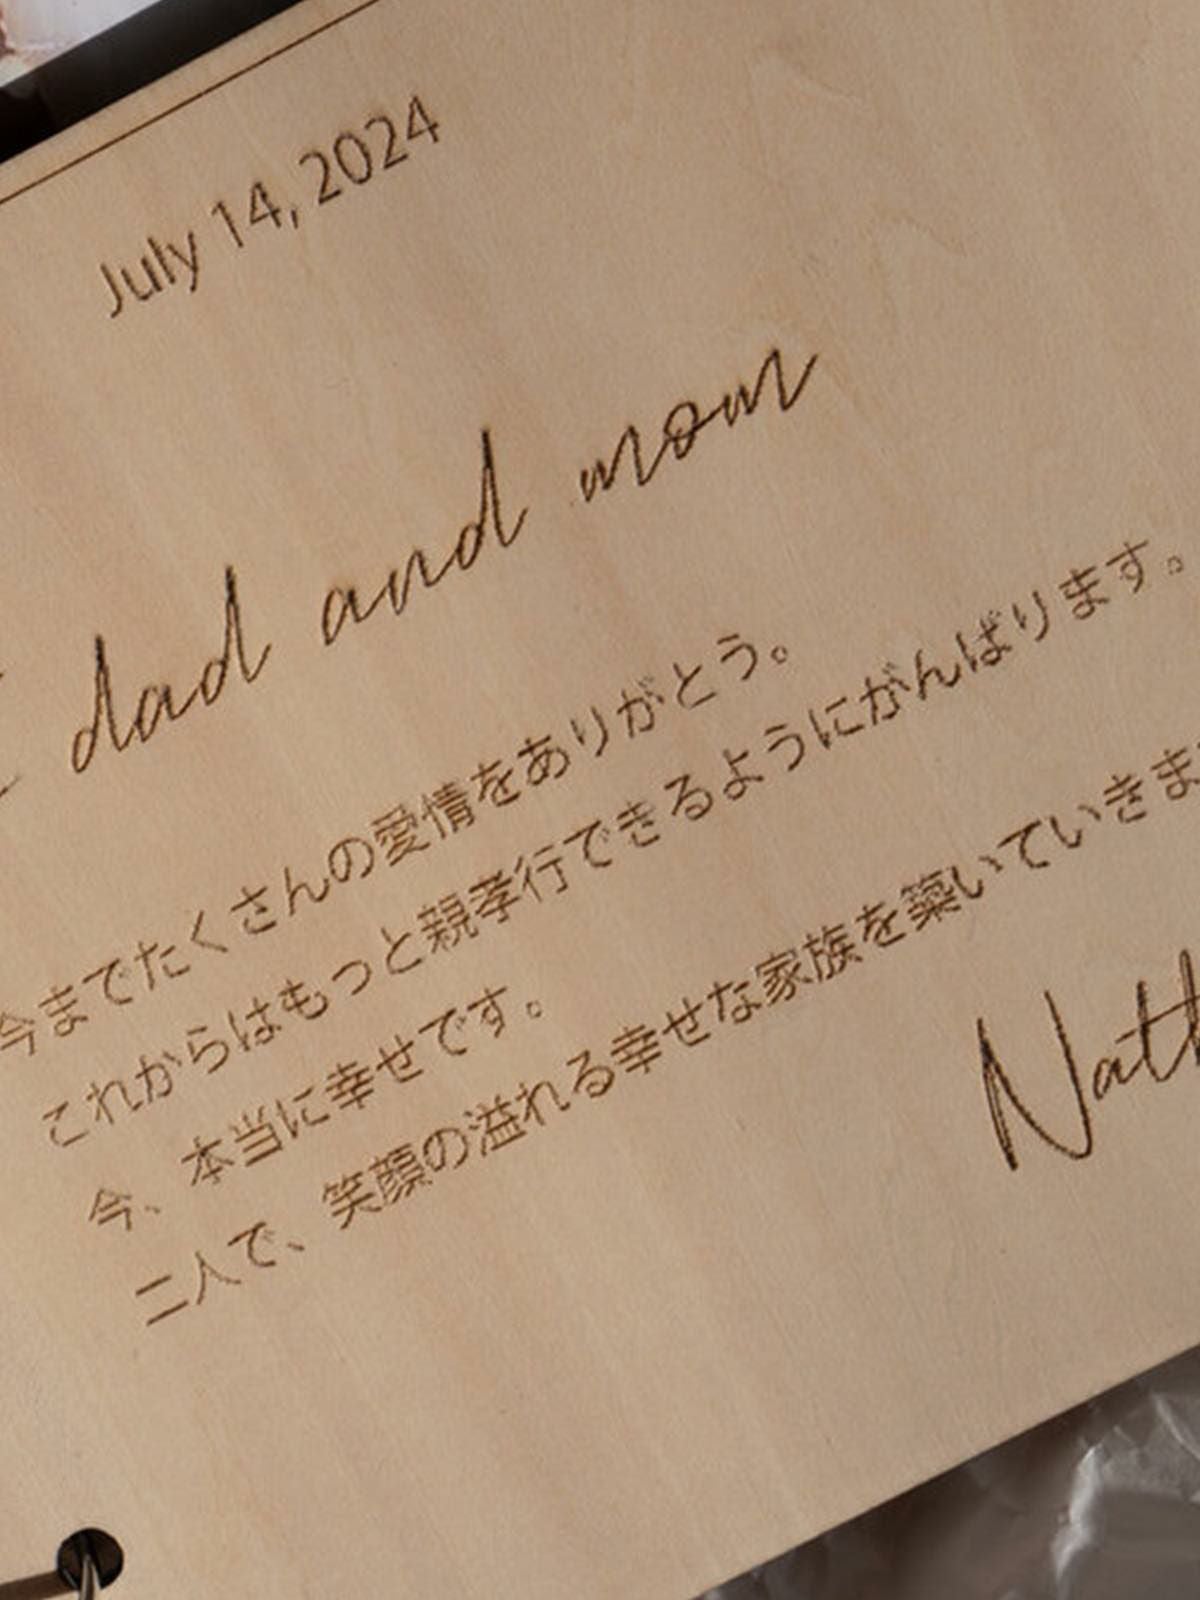 July 14, 2024
dad and mom
今までたくさんの愛情をありがとう。
これからはもっと親孝行できるようにがんばります。
今、本当に幸せです。
二人で、笑顔の溢れる幸せな家族を築いていきま
Nath